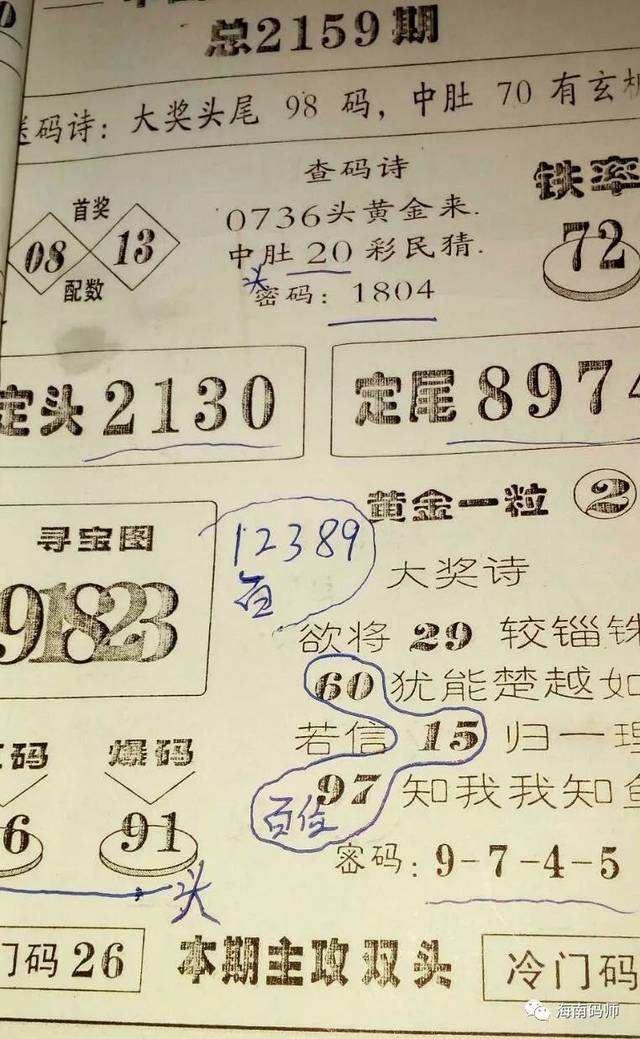 总2159期
送码诗：大奖头尾 98 码，中肚 70 有玄机
首奖
08 13
配数
查码诗
0736头黄金来.
中肚 20 彩民猜.
头
密码：1804
铁率
72
定头 2130
定尾 8974
寻宝图
91823
12389
百
黄金一粒 2
大奖诗
欲将 29 较锱铢
60 犹能楚越如
若信 15 归一理
97 知我我知鱼
百位
密码：9-7-4-5
码 爆码
6 91
头
门码 26
本期主攻双头
冷门码
海南码师